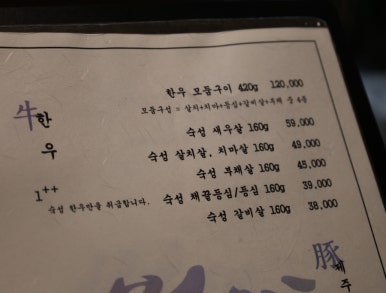 牛한우
1++
숙성 한우만을 취급합니다.
한우 모둠구이 420g 120,000
모둠구성 = 살치+치마+등심+갈비살+부채 중 4종
숙성 새우살 160g 59,000
숙성 살치살, 치마살 160g 49,000
숙성 부채살 160g 45,000
숙성 채끝등심/등심 160g 39,000
숙성 갈비살 160g 38,000
豚
제주